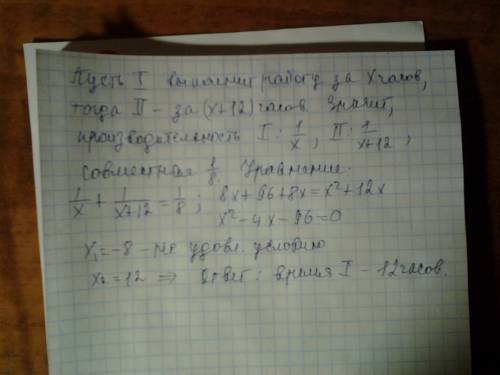 Пусть I выполнит работу за x часов,
тогда II – за (x+12) часов. Значит,
производительность I: 1/x, II: 1/x+12,
совместная 1/8. Уравнение:
1/x + 1/x+12 = 1/8; 8x+96+8x=x²+12x
x²-4x-96=0
x₁=-8 – не удовл. условию
x₂=12 ⇒ Ответ: время I – 12 часов.